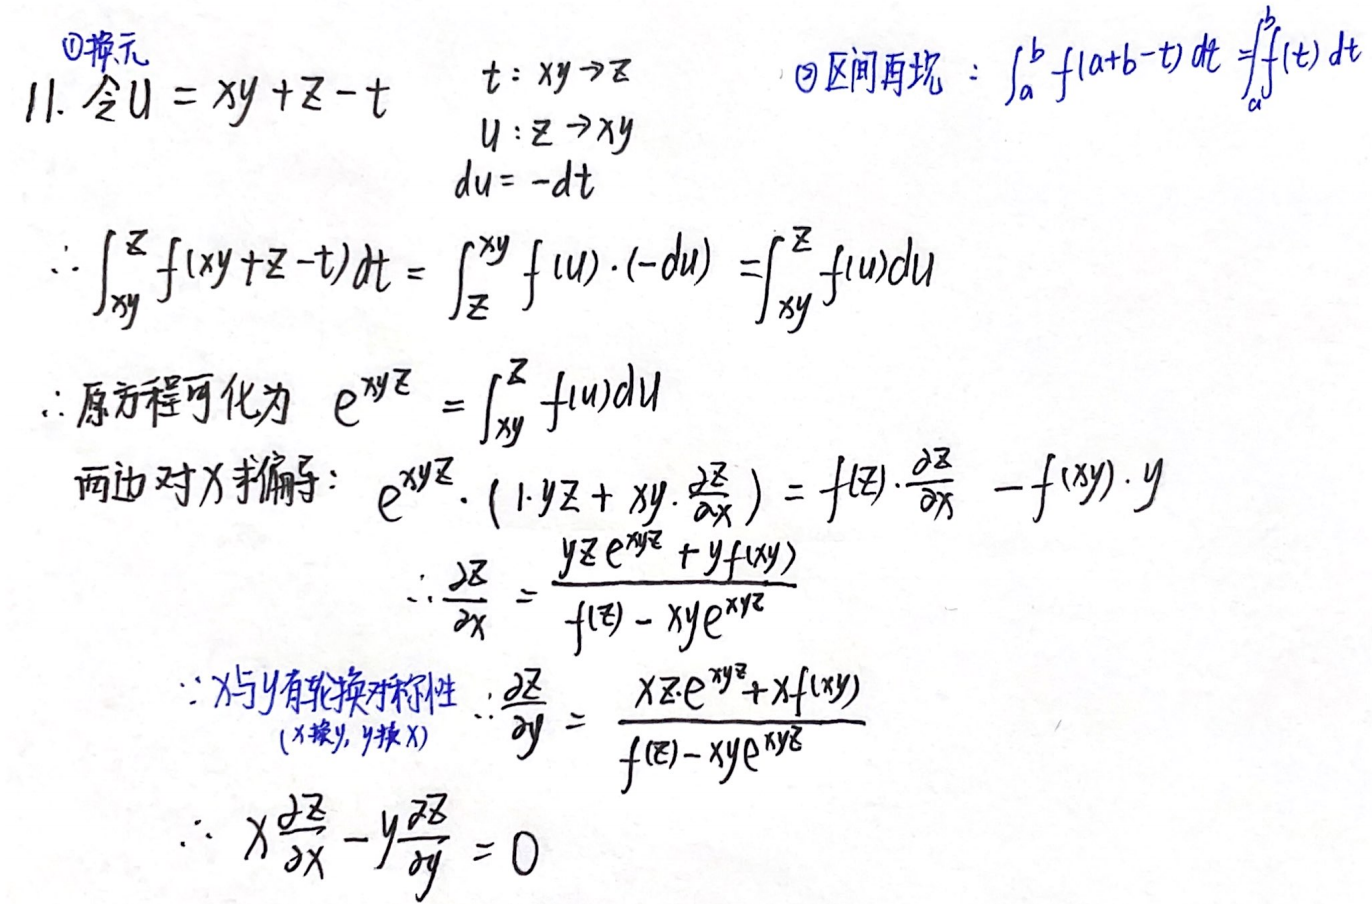 ①换元
11. 令u = xy+z-t
t: xy→z
②区间再现: ∫_a^b f(a+b-t) dt = ∫_a^b f(t) dt
u: z→xy
du = -dt
∴ ∫_{xy}^{z} f(xy+z-t)dt = ∫_{z}^{xy} f(u)·(-du) = ∫_{xy}^{z} f(u)du
∴原方程可化为 e^{xyz} = ∫_{xy}^{z} f(u)du
两边对x求偏导: e^{xyz}·(1·yz + xy·∂z/∂x) = f(z)·∂z/∂x - f(xy)·y
∴ ∂z/∂x = (yze^{xyz} + yf(xy))/(f(z) - xye^{xyz})
∵x与y有轮换对称性 ∴ ∂z/∂y = (xz·e^{xyz} + xf(xy))/(f(z) - xye^{xyz})
(x换y, y换x)
∴ x∂z/∂x - y∂z/∂y = 0